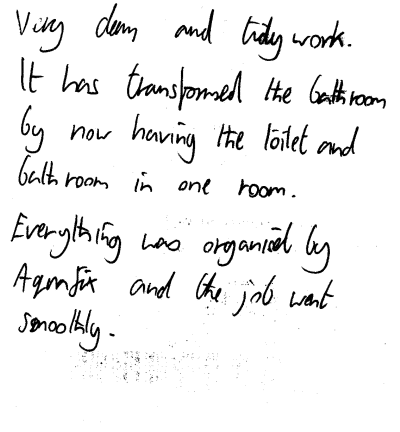 Very clean and tidy work.
It has transformed the bathroom
by now having the toilet and
bathroom in one room.
Everything was organised by
Aquafix and the job went
smoothly.